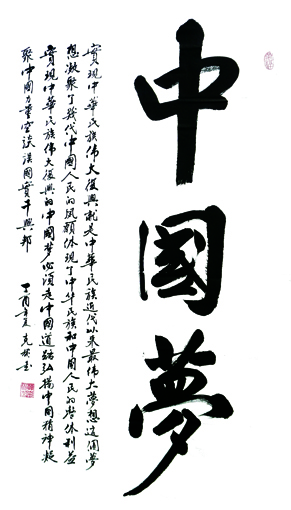 中國夢
實現中華民族偉大復興就是中華民族近代以來最偉大夢想這個夢
想凝聚了幾代中國人民的夙願体現了中华民族和中國人民的整体利益
實現中華民族偉大復興的中國梦必須走中國道路弘揚中國精神凝
聚中國力量空谈误國實干興邦
丁酉年夏